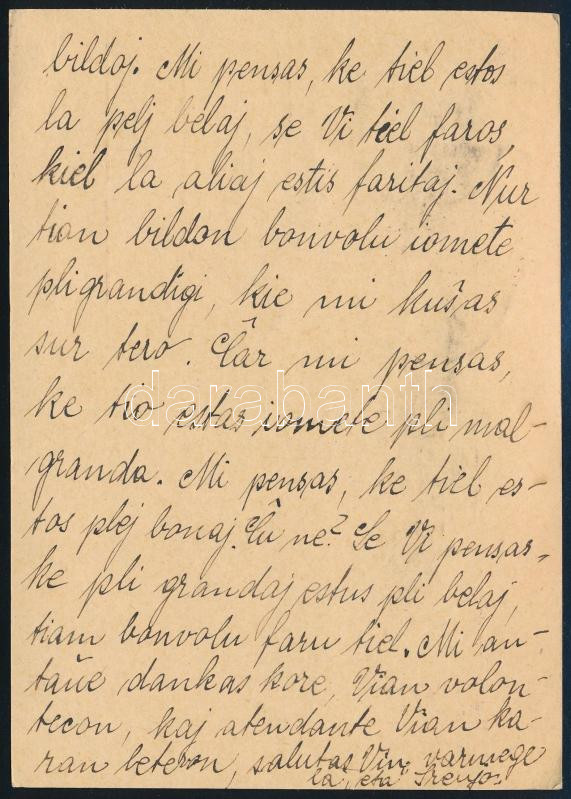 bildoj. Mi pensas, ke tiel estos
la pelj belaj, se Vi tiel faros,
kiel la aliaj estis faritaj. Nur
tian bildon bonvolu iomete
pligrandigi, kie mi kušas
sur tero. Ĉar mi pensas,
ke tio estas iomete pli mal-
granda. Mi pensas, ke tiel es-
tos plej bonaj. Ĉu ne? Se Vi pensas-
ke pli grandaj estus pli belaj,
tiam bonvolu faru tiel. Mi an-
taŭe dankas kore, Vian volon-
tecon, kaj atendante Vian ka-
ran leteron, salutas Vin varmege
la „eta"
darabanth